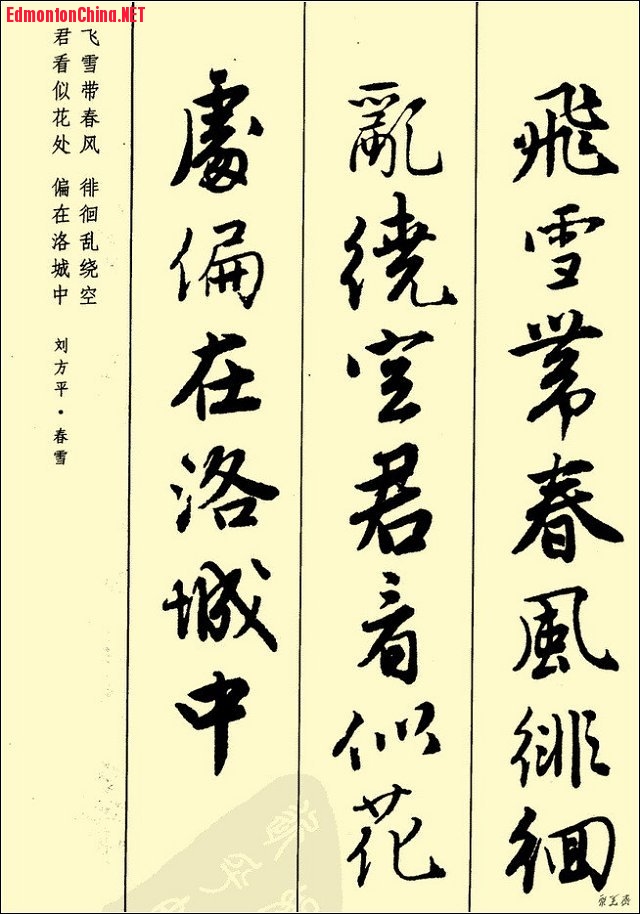 EdmontonChina.NET
飛雪帶春風徘徊
亂繞空君看似花
處偏在洛城中
飞雪带春风 徘徊乱绕空
君看似花处 偏在洛城中
刘方平·春雪